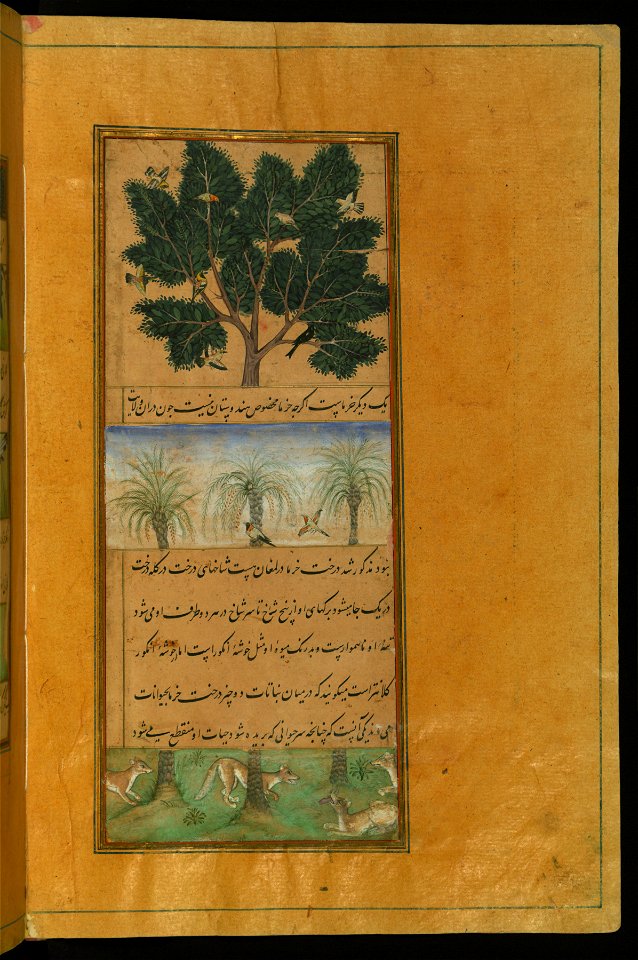 یک دیکر خرماست اکرچه خرما مخصوص هندوستان نیست چون دران ولایت
نبود مذکور شد درخت خرما در لمغان هست شاخهای درخت در کله درخت
در یک جا میشود برکهای او از بیخ شاخ تا سر شاخ در هر دو طرف او می شود
تنهٔ او ناهموارست و بدرنک میوه او مثل خوشهٔ انکورست اما از خوشهٔ انکور
کلانترست میکویند که درمیان نباتات دو چیز درخت خرما بحیوانات
می ماند یکی آنست که چنانچه سر حیوانی که بریده شود حیات او منقطع می شود